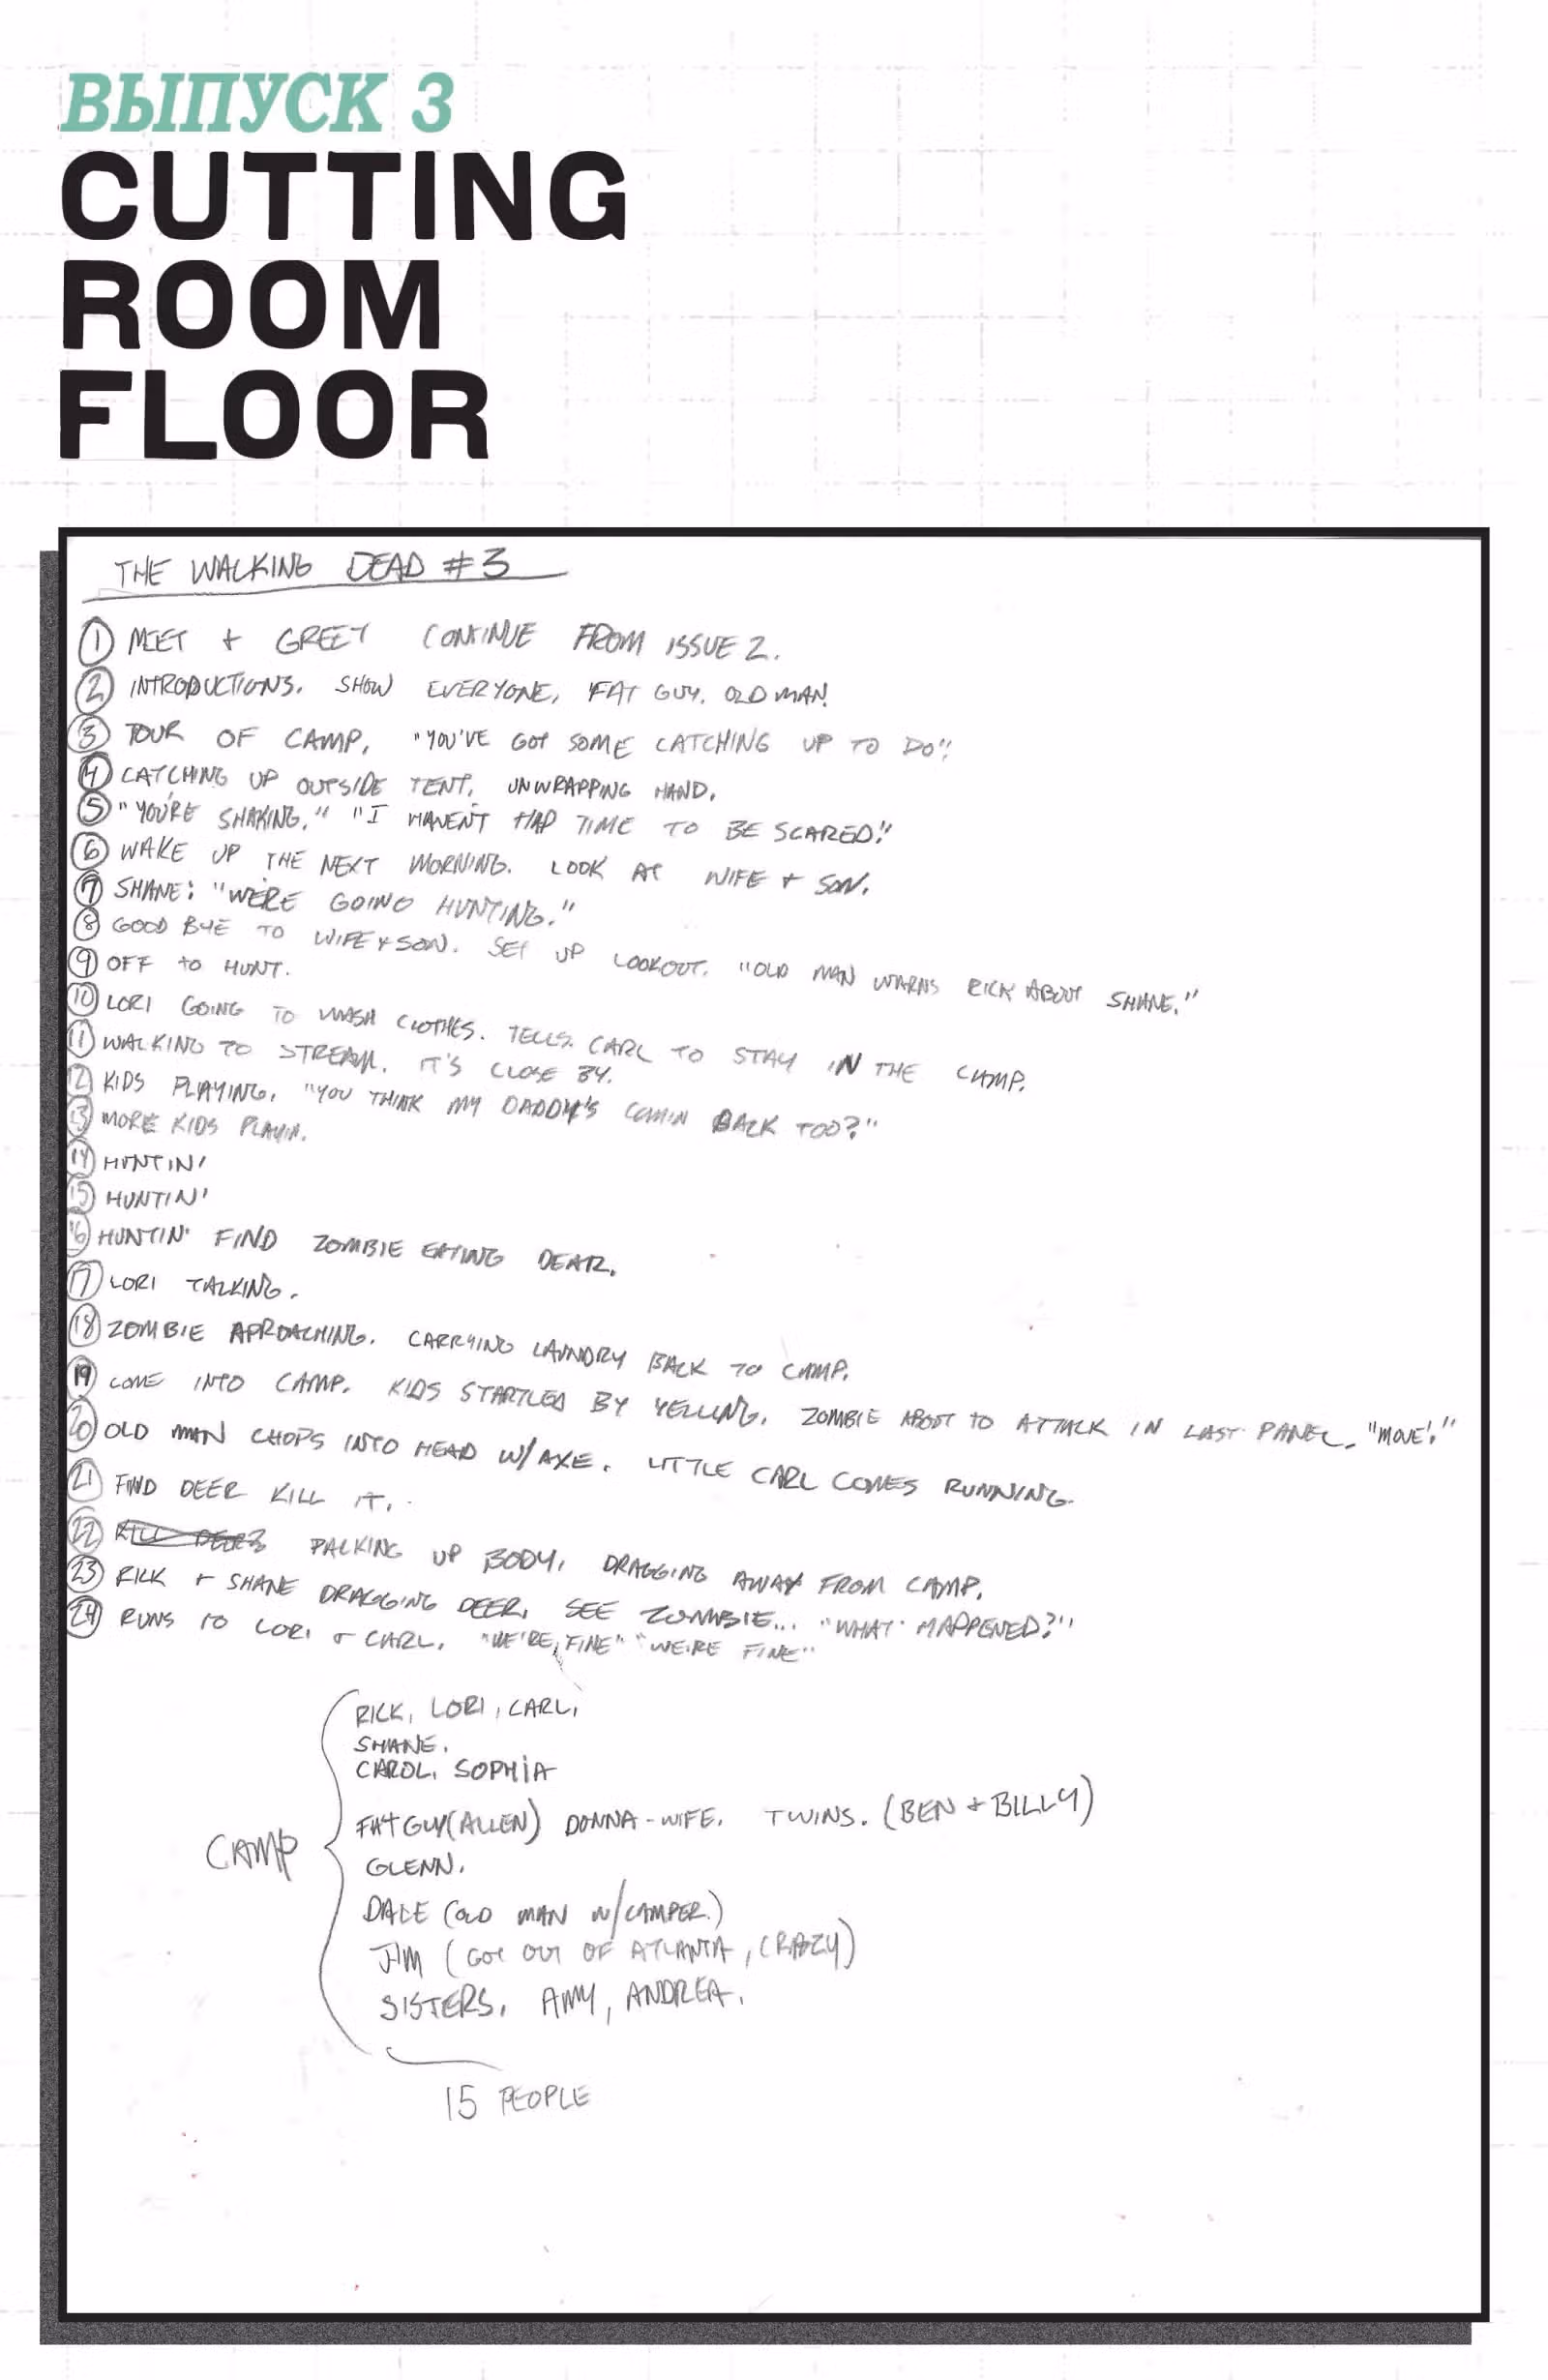 ВЫПУСК 3
CUTTING
ROOM
FLOOR
THE WALKING DEAD #3
1 MEET + GREET CONTINUE FROM ISSUE 2.
2 INTRODUCTIONS. SHOW EVERYONE, FAT GUY. OLD MAN.
3 TOUR OF CAMP, "YOU'VE GOT SOME CATCHING UP TO DO".
4 CATCHING UP OUTSIDE TENT. UNWRAPPING HAND.
5 "YOU'RE SHAKING." "I HAVEN'T HAD TIME TO BE SCARED."
6 WAKE UP THE NEXT MORNING. LOOK AT WIFE + SON.
7 SHANE: "WE'RE GOING HUNTING."
8 GOOD BYE TO WIFE + SON. SET UP LOOKOUT. "OLD MAN WARNS RICK ABOUT SHANE."
9 OFF TO HUNT.
10 LORI GOING TO WASH CLOTHES. TELLS CARL TO STAY IN THE CAMP.
11 WALKING TO STREAM. IT'S CLOSE BY.
12 KIDS PLAYING, "YOU THINK MY DADDY'S COMIN BACK TOO?"
13 MORE KIDS PLAYIN.
14 HUNTIN'
15 HUNTIN'
16 HUNTIN' FIND ZOMBIE EATING DEAR.
17 LORI TALKING.
18 ZOMBIE APROACHING. CARRYING LAUNDRY BACK TO CAMP.
19 COME INTO CAMP. KIDS STARTLED BY YELLING. ZOMBIE ABOUT TO ATTACK IN LAST PANEL. "MOVE!"
20 OLD MAN CHOPS INTO HEAD W/AXE. LITTLE CARL COMES RUNNING.
21 FIND DEER KILL IT.
22 KILL DEER PACKING UP BODY, DRAGGING AWAY FROM CAMP.
23 RICK + SHANE DRAGGING DEER, SEE ZOMBIE... "WHAT HAPPENED?"
24 RUNS TO LORI + CARL. "WE'RE FINE" "WE'RE FINE"
RICK, LORI, CARL,
SHANE.
CAROL, SOPHIA
FAT GUY (ALLEN) DONNA - WIFE. TWINS. (BEN + BILLY)
CAMP
GLENN.
DALE (OLD MAN W/CAMPER.)
JIM (GOT OUT OF ATLANTA, CRAZY)
SISTERS. AMY, ANDREA.
15 PEOPLE